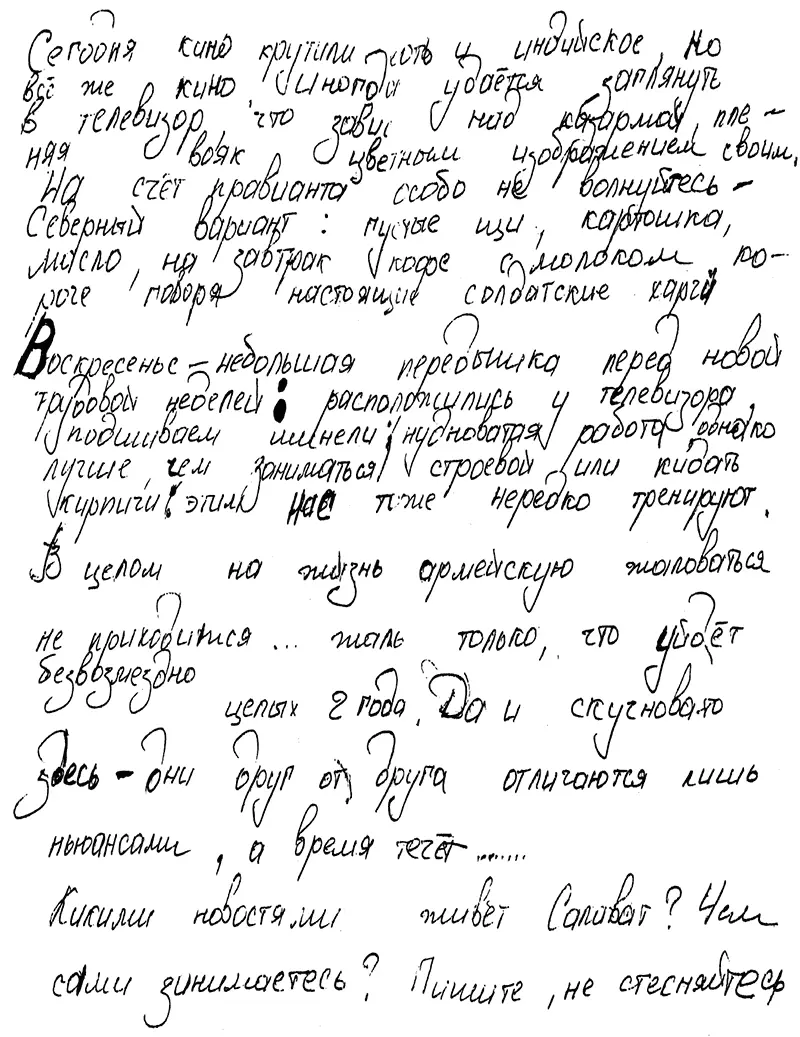 Сегодня кино крутили хоть и индийское, но
всё же кино. Иногда удаётся заглянуть
в телевизор, что завис над казармой, пле-
няя вояк цветным изображением своим.
На счёт правианта особо не волнуйтесь -
Северный вариант: пустые щи, картошка,
масло, на завтрак кофе с молоком ко-
роче говоря настоящие солдатские харчи
Воскресенье - небольшая передышка перед новой
трудовой неделей: расположились у телевизора,
подшиваем шинели: нудноватая работа, однако
лучше, чем заниматься строевой или кидать
кирпичи: этим нас тоже нередко тренируют.
В целом на жизнь армейскую жаловаться
не приходится... жаль только, что уйдёт
безвозмездно
целых 2 года. Да и скучновато
здесь - дни друг от друга отличаются лишь
ньюансами, а время течёт .......
Какими новостями живёт Салават? Чем
сами занимаетесь? Пишите, не стесняйтесь